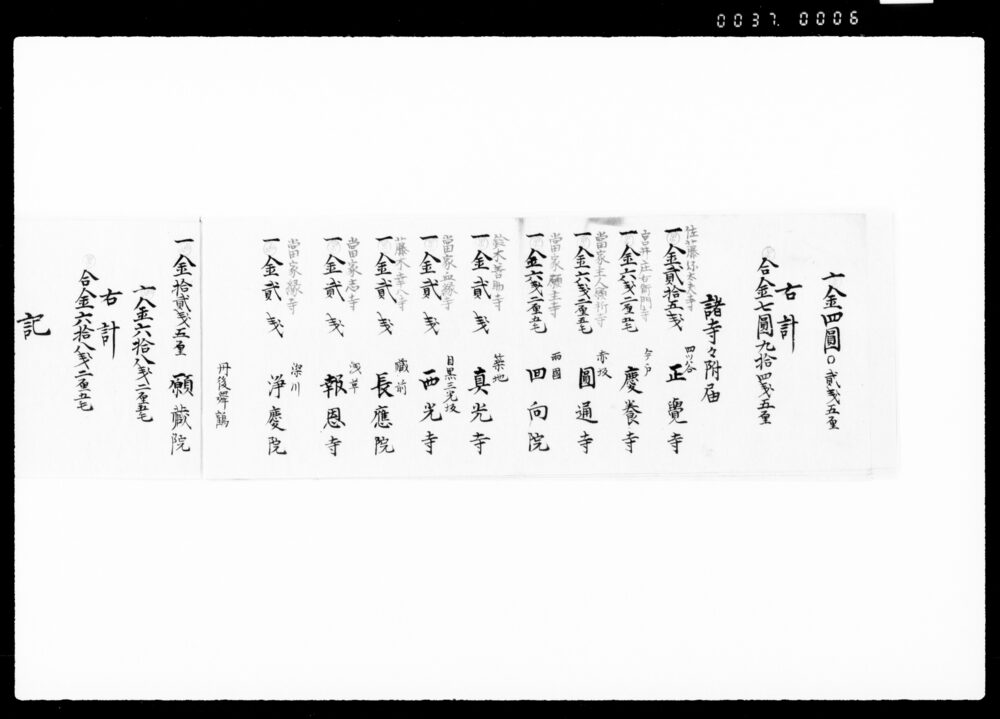 0037. 0006
〆金四圓〇貳戔五厘
右計
合金七圓九拾四戔五厘
諸寺々附届
佐藤弥太夫寺
一金貳拾五戔 四ツ谷 正覺寺
宮井庄右衛門寺
一金六戔二厘五毛 今戸 慶養寺
當家主人願所寺
一金六戔二厘五毛 赤坂 圓通寺
當家願主寺
一金六戔二厘五毛 両國 回向院
鈴木善助寺
一金貳戔 築地 真光寺
當家由緣寺
一金貳戔 目黒三光坂 西光寺
藤木幸八寺
一金貳戔 蔵前 長應院
當家志寺
一金貳戔 浅草 報恩寺
當家縁寺
一金貳戔 深川 淨慶院
丹後舞鶴
一金拾貳戔五厘 願蔵院
〆金六拾八戔二厘五毛
右計
合金六拾八戔二厘五毛
記